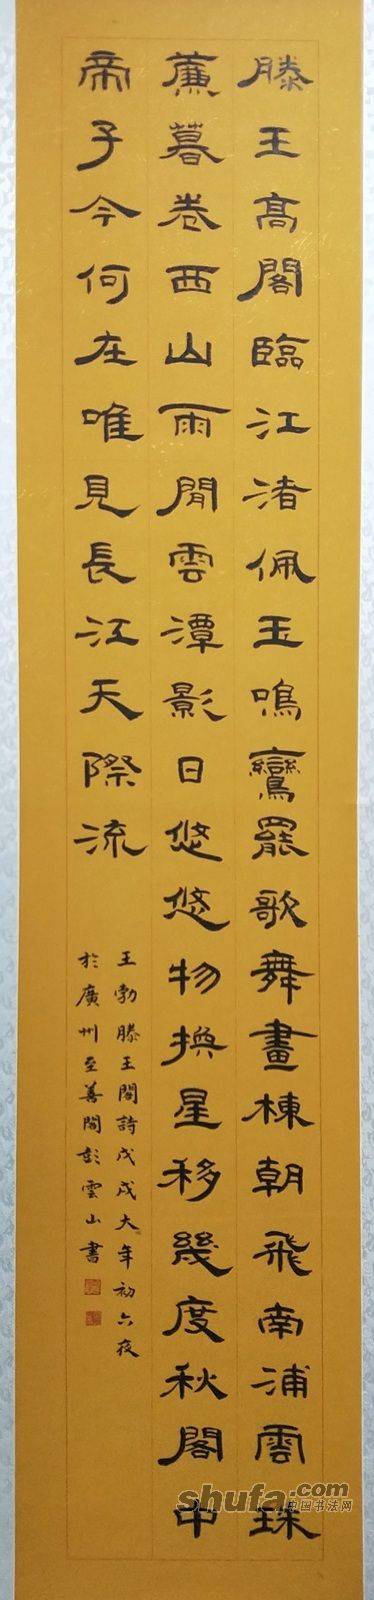 滕王高閣臨江渚佩玉鳴鸞罷歌舞畫棟朝飛南浦雲珠
簾暮卷西山雨閒雲潭影日悠悠物換星移幾度秋閣中
帝子今何在唯見長江天際流
王勃滕王閣詩戊戌大年初六夜
於廣州至善閣彭雲山書
shufa.com
中国书法网